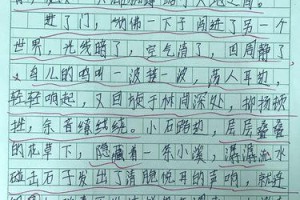 进了门，仿佛一下子闯进了另一个
世界，光线暗了，空气清了，四周静了
，鸟儿的鸣叫一波接一波，荡人耳边，
轻轻响起，又回旋于林间深处，
余音缭绕。小石路边，层层叠叠
的花草下，隐藏着一条小溪，潺潺流水
碰击石子发出了清脆悦耳的声响，就连